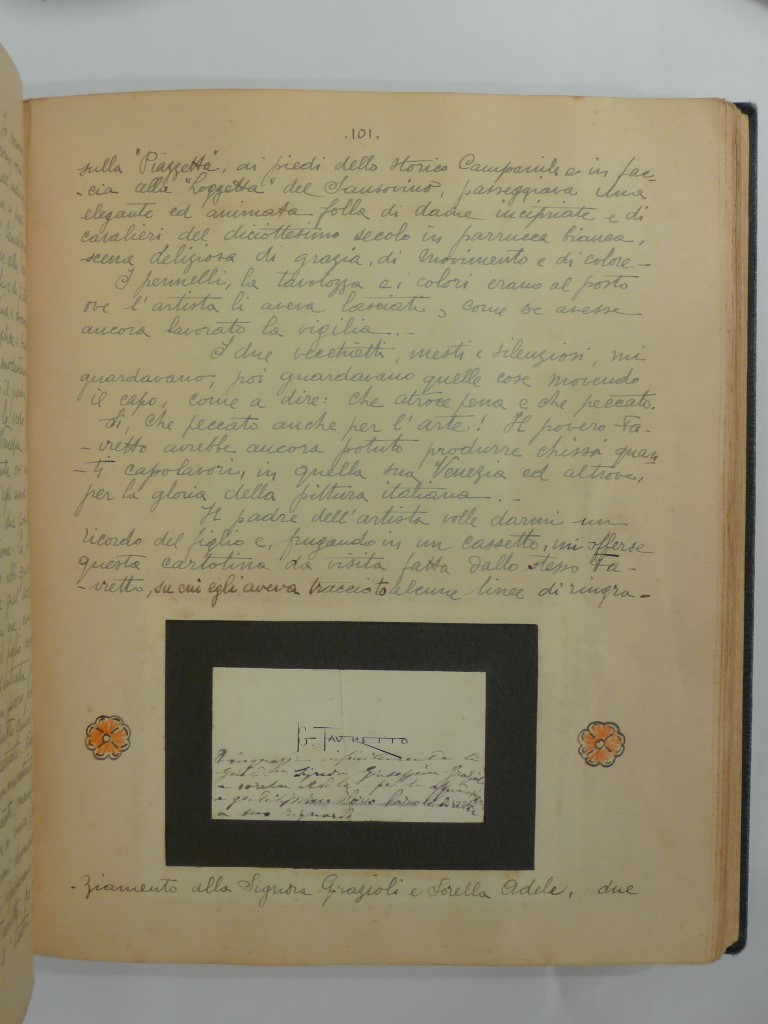 .101.
sulla "Piazzetta", ai piedi dello storico Campanile e in fac-
-cia alla "Loggetta" del Sansovino, passeggiava una
elegante ed animata folla di dame incipriate e di
cavalieri del diciottesimo secolo in parrucca bianca,
scena deliziosa di grazia, di movimento e di colore.-
I pennelli, la tavolozza e i colori erano al posto
ove l'artista li aveva lasciati, come se avesse
ancora lavorato la vigilia..-
I due vecchietti, mesti e silenziosi, mi
guardavano, poi guardavano quelle cose movendo
il capo, come a dire: che atroce pena e che peccato.
Sì, che peccato anche per l'arte! Il povero Fa-
-vretto avrebbe ancora potuto produrre chissà quan-
-ti capolavori, in quella sua Venezia ed altrove,
per la gloria della pittura italiana..-
Il padre dell'artista volle darmi un
ricordo del figlio e, frugando in un cassetto, mi offerse
questa cartolina da visita fatta dallo stesso Fa-
-vretto, su cui egli aveva tracciato alcune linee di ringra-
G. FAVRETTO
Ringrazia infinitamente la
Signora Giuseppina
e sorella Adela per la
e gentilissima
a suo riguardo
-ziamento alla Signora Grazioli e Sorella Adele, due